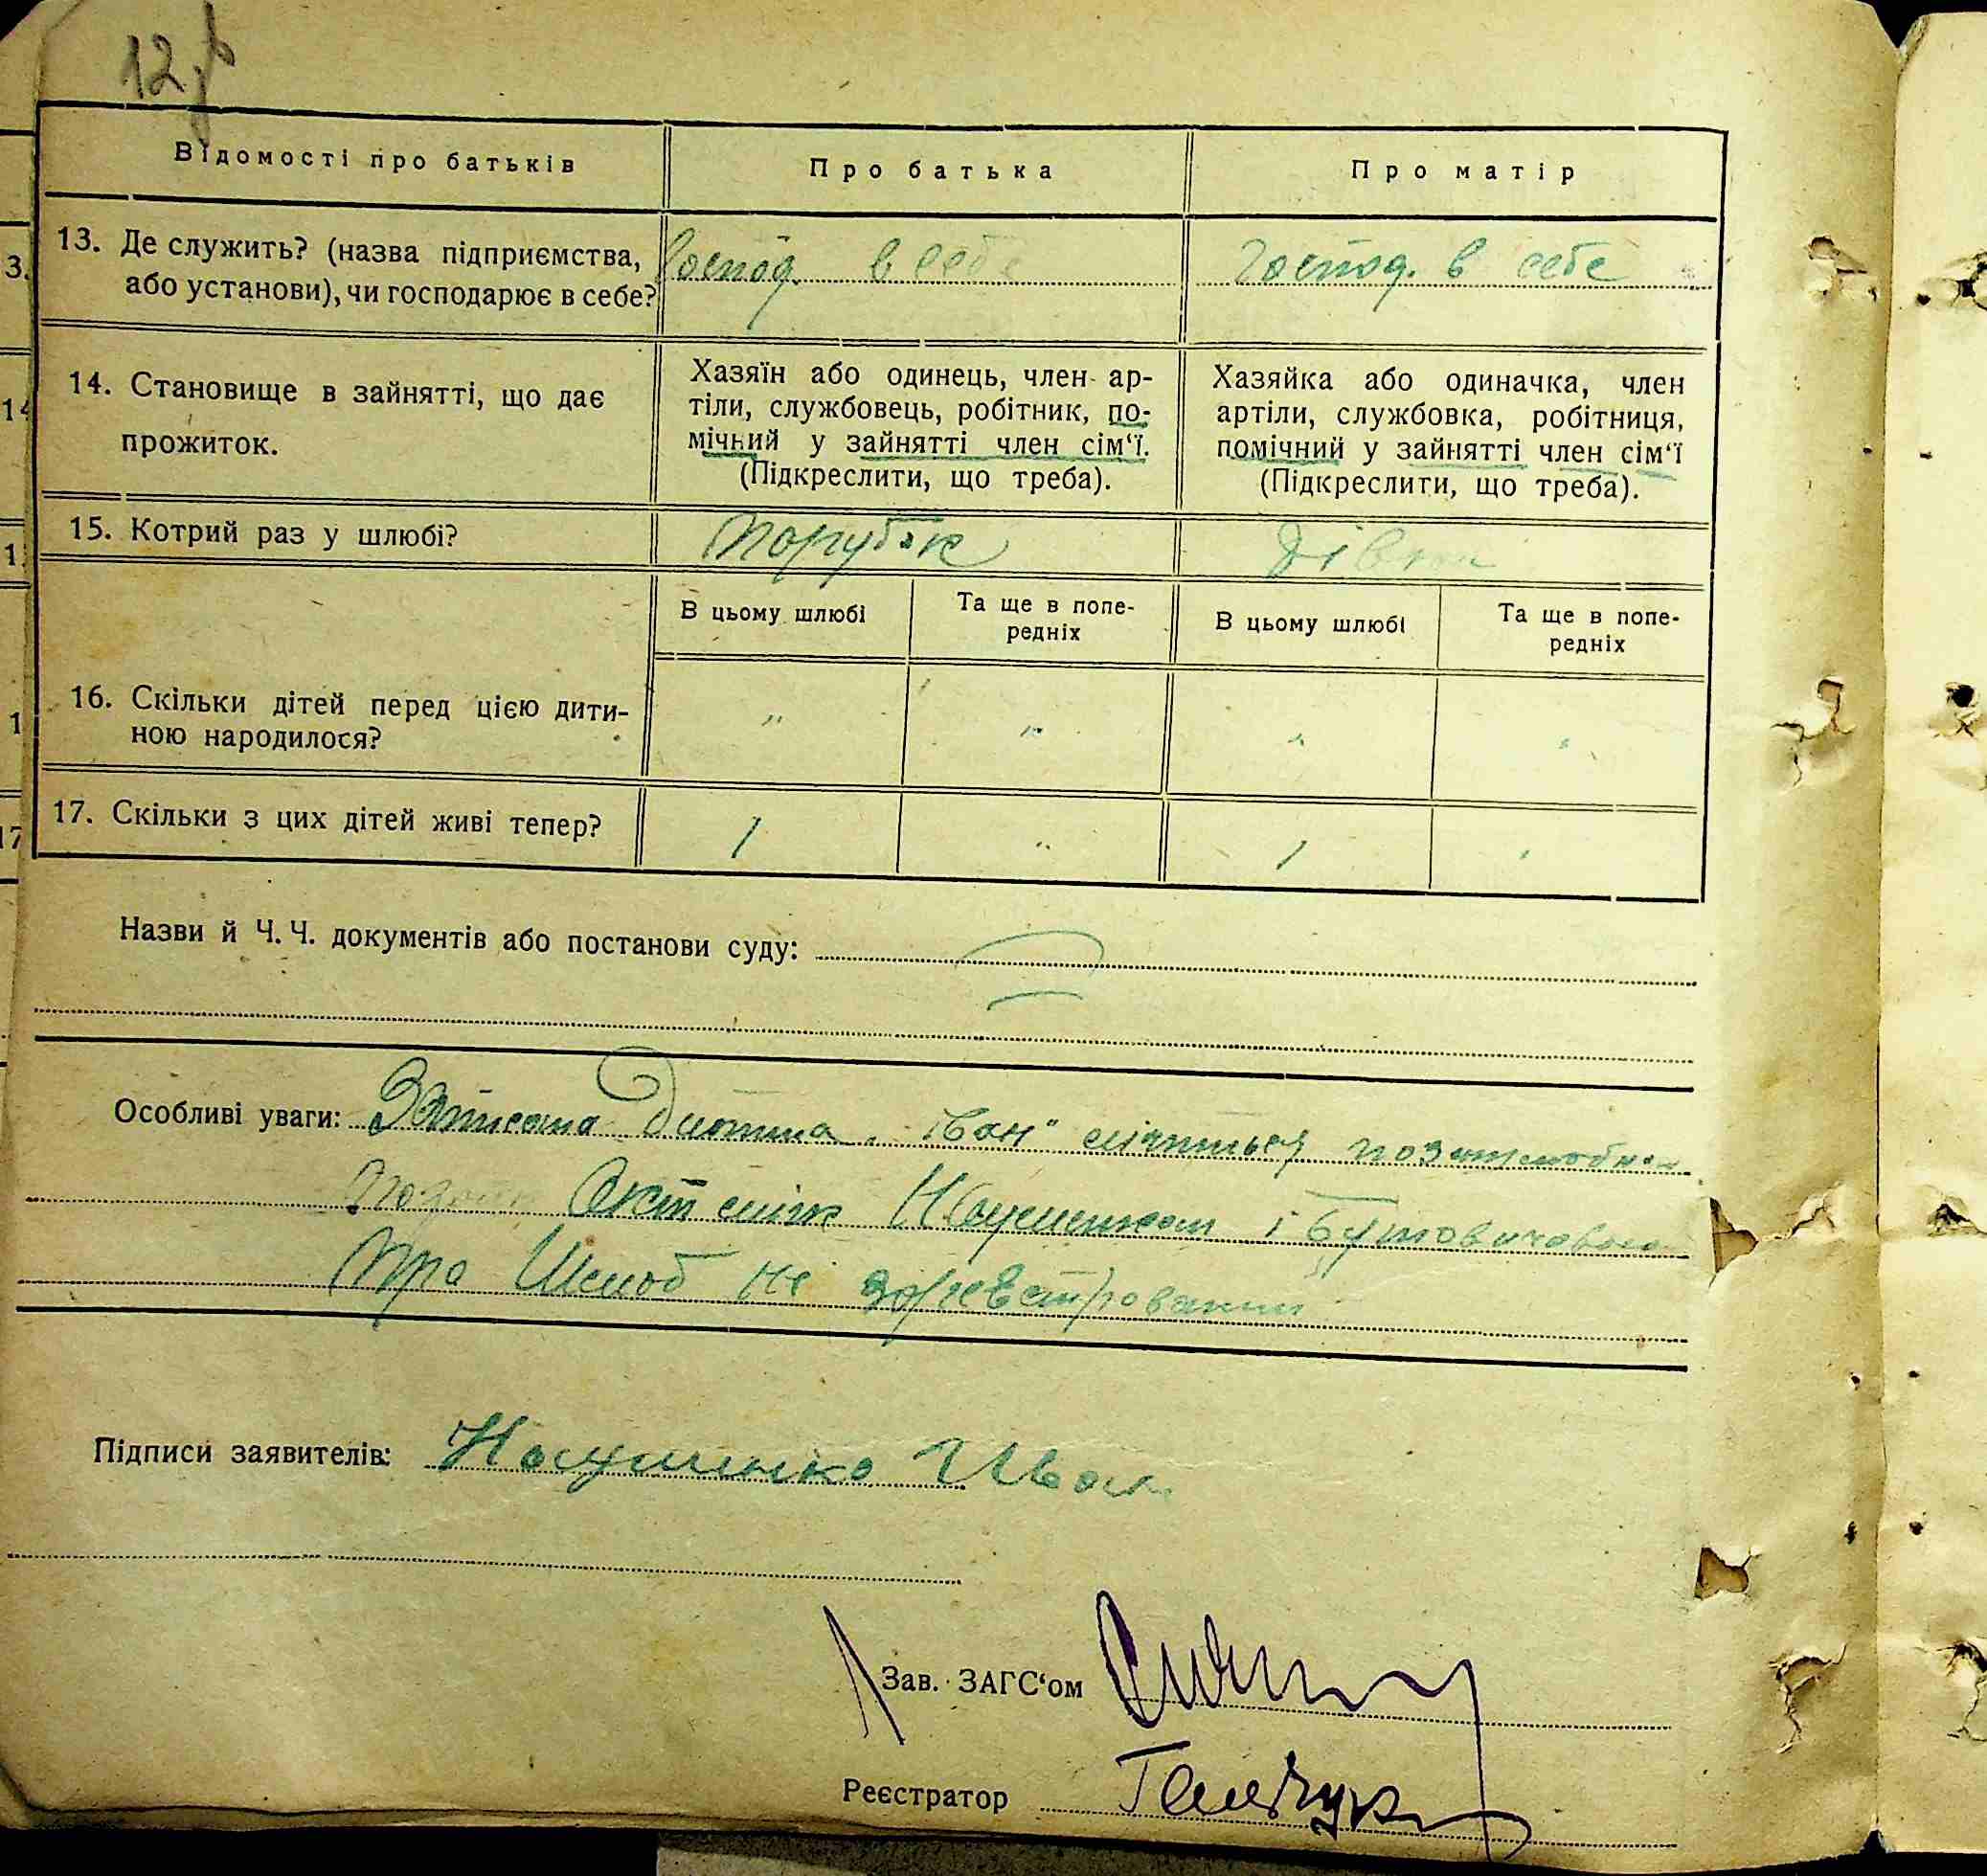 12
Відомості про батьків
Про батька
Про матір
13. Де служить? (назва підприємства,
або установи), чи господарює в себе?
Господ. в себе
Господ. в себе
14. Становище в зайнятті, що дає
прожиток.
Хазяїн або одинець, член ар-
тіли, службовець, робітник, по-
мічний у зайнятті член сім‘ї.
(Підкреслити, що треба).
Хазяйка або одиначка, член
артіли, службовка, робітниця,
помічний у зайнятті член сім‘ї
(Підкреслити, що треба).
15. Котрий раз у шлюбі?
Парубок
В цьому шлюбі
Та ще в попе-
редніх
В цьому шлюбі
Та ще в попе-
редніх
16. Скільки дітей перед цією дити-
ною народилося?
"
"
"
"
17. Скільки з цих дітей живі тепер?
1
"
1
"
Назви й Ч. Ч. документів або постанови суду:
Особливі уваги: Записана дитина „Іван"
Акт між Науменком і
про шлюб не зареєстрований
Підписи заявителів: Науменко Иван
Зав. ЗАГС‘ом
Реєстратор
3.
14
1
1
17